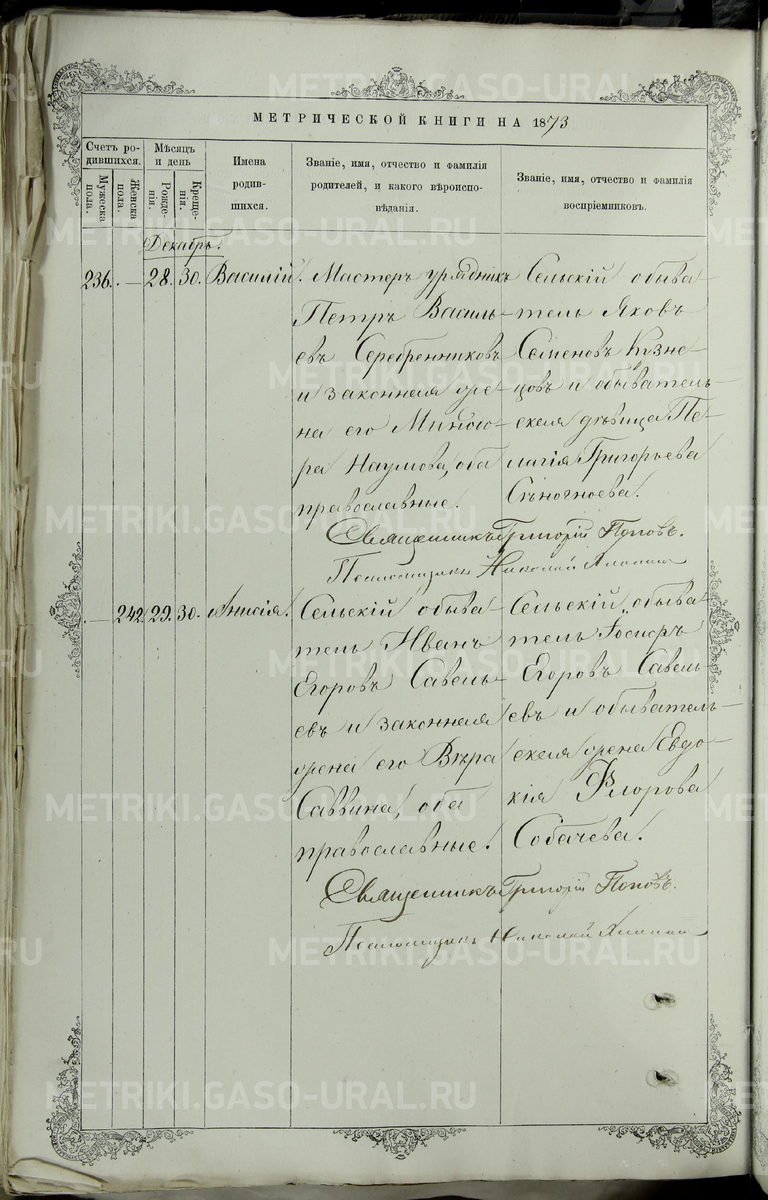 МЕТРИЧЕСКОЙ КНИГИ НА 1873
Счетъ ро-
дившихся.
Мужеска
пола.
Женска
пола.
Мѣсяцъ
и день
Рожде-
нія.
Креще-
нія.
Имена
родив-
шихся.
Званіе, имя, отчество и фамилія
родителей, и какого вѣроиспо-
вѣданія.
Званіе, имя, отчество и фамилія
воспріемниковъ.
Декабрь.
236. — 28. 30. Василій. Мастеръ урядникъ
Петръ Василь-
евъ Серебренниковъ
и законная же-
на его Минодо-
ра Наумова, оба
православные.
Сельскій обыва-
тель Яковъ
Семеновъ Кузне-
цовъ и обыватель-
ская дѣвица Пе-
лагія Григорьева
Сѣногноева.
Священникъ Григорій Поповъ.
Псаломщикъ Николай
— 242. 29. 30. Анисія. Сельскій обыва-
тель Иванъ
Егоровъ Савель-
евъ и законная
жена его Вѣра
Саввина, оба
православные.
Сельскій обыва-
тель Іосифъ
Егоровъ Савель-
евъ и обыватель-
ская жена Евдо-
кія Флорова
Собачева.
Священникъ Григорій Поповъ.
Псаломщикъ Николай
METRIKI.GASO-URAL.RU